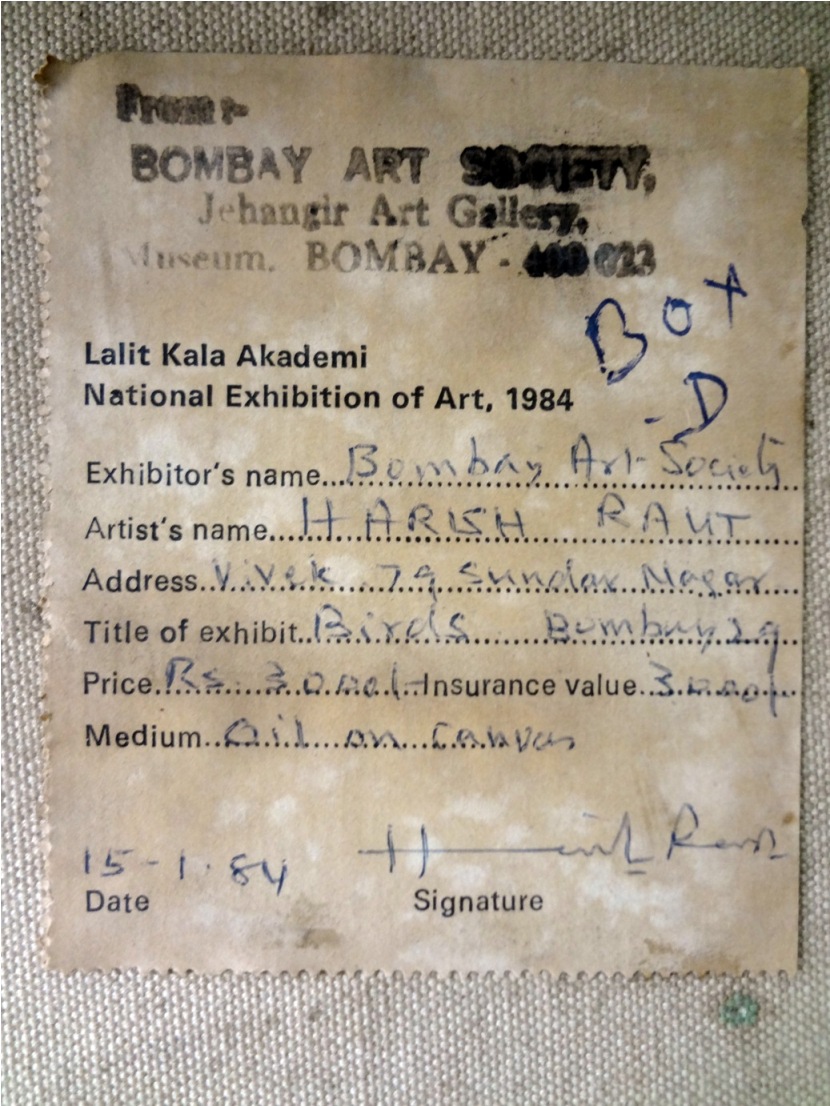 From :-
BOMBAY ART SOCIETY,
Jehangir Art Gallery,
Museum. BOMBAY - 400 023
Box
- D
Lalit Kala Akademi
National Exhibition of Art, 1984
Exhibitor's name...Bombay Art Society
Artist's name....HARISH RAUT
Address..Vivek 79 Sundar Nagar
Title of exhibit..Birds Bombay 29
Price.Rs. 3000/- Insurance value..3000/-
Medium..Oil on Canvas
15-1.84 Harish Raut
Date Signature